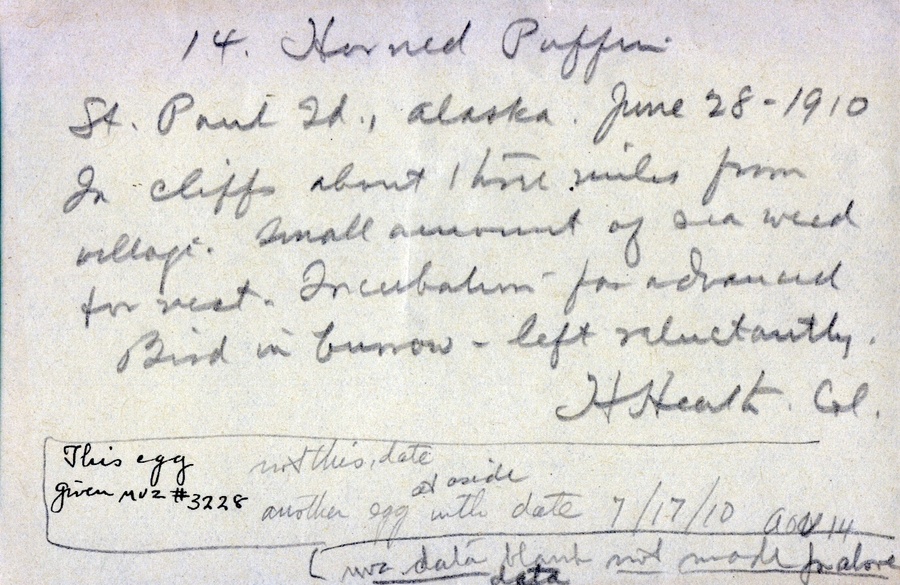 14. Horned Puffin
St. Paul Id., Alaska. June 28-1910
In cliffs about three miles from
village. Small amount of sea weed
for nest. Incubation far advanced
Bird in burrow - left reluctantly.
H Heath. Col.
This egg
given MVZ #3228
not this date
set aside
another egg with date 7/17/10 AOU 14
MVZ data blank not made for above
data